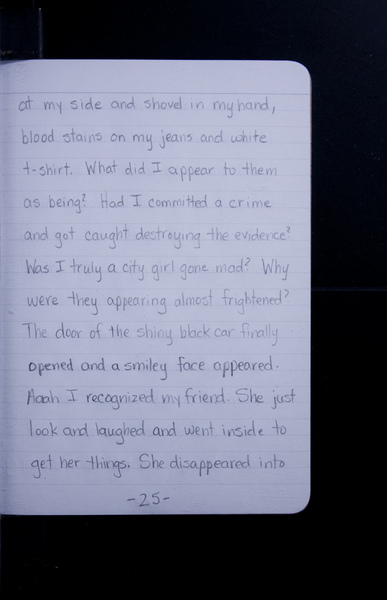 at my side and shovel in my hand,
blood stains on my jeans and white
t-shirt. What did I appear to them
as being? Had I committed a crime
and got caught destroying the evidence?
Was I truly a city girl gone mad? Why
were they appearing almost frightened?
The door of the shiny black car finally
opened and a smiley face appeared.
Aaah I recognized my friend. She just
look and laughed and went inside to
get her things. She disappeared into
-25-